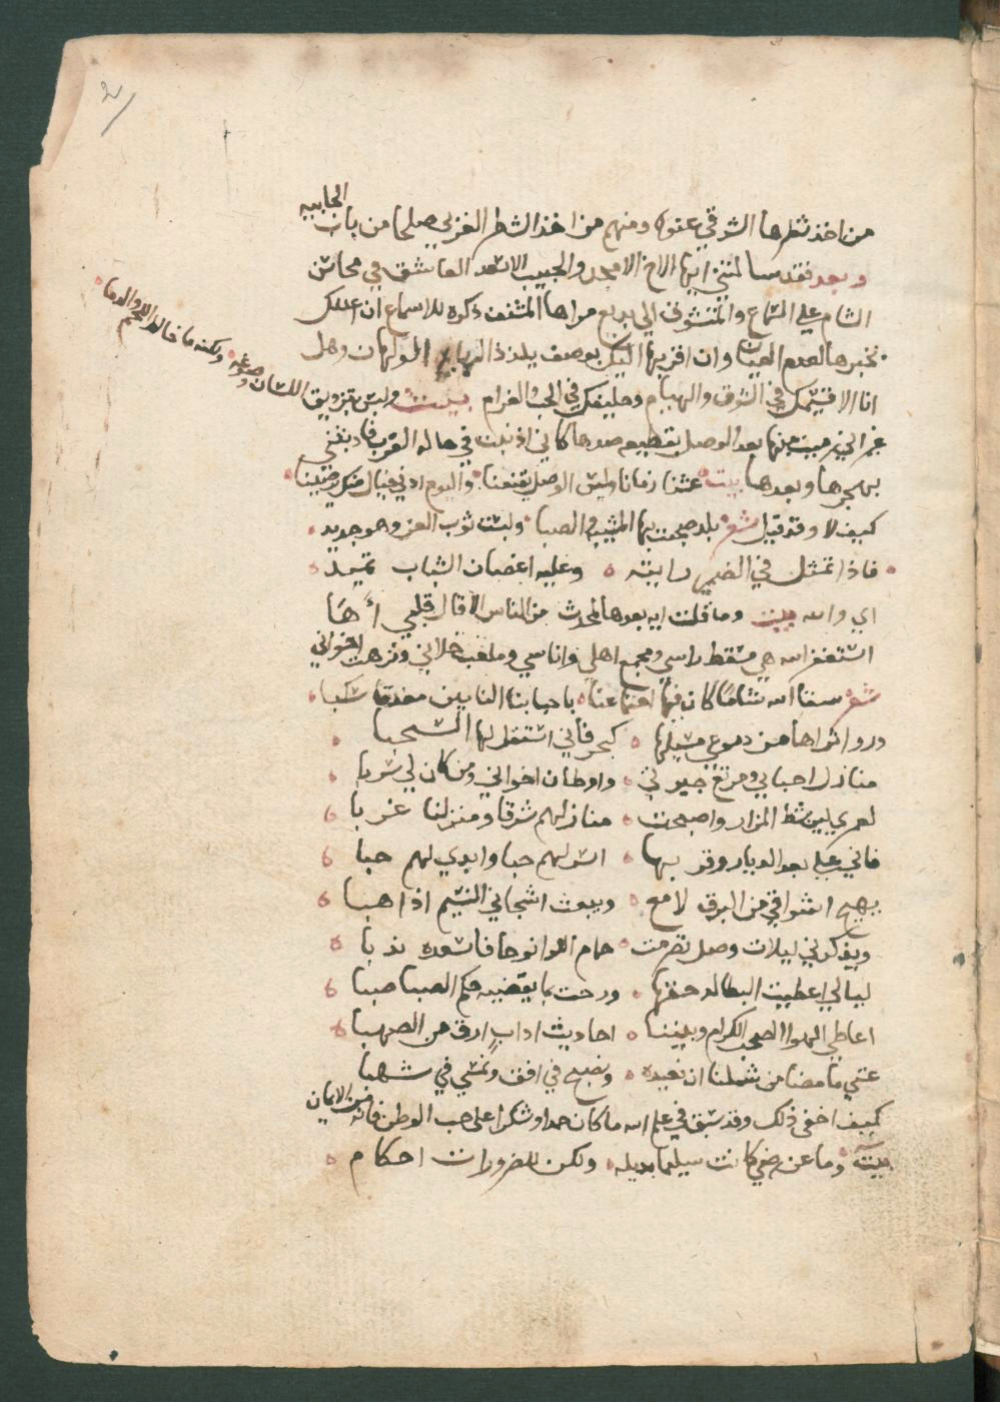 من اخذ شطرها الشرقي عنوة ومنهم من اخذ الشطر الغربي صلحا من باب الجابيه
وبعد فقد سالتني ايها الاخ الامجد والحبيب الاسعد العاشق في محاسن
الشام علي السماع والمتشوق الي بديع مراها المشنف ذكره للاسماع ان اعللك
بخبرها لعدم العيان وان اقربها اليك بوصف يلذذ الولهان وهل
انا الا قسيمك في الشوق والهيام وحليفك في الحب والغرام بيت وليس بتزويق اللسان وصوغه ولكنه ما خالط اللحم والدما
غير اني رميت منها بعد الوصل بقطيعه صدها كاني اذنبت في حاله القرب فادبتني
بهجرها وبعدها بيت عشنا زمانا وليس الوصل يقنعنا واليوم ادني خيال منك يرضينا
كيف لا وقد قيل شعر بلد صحبت بها الشبيبه والصبا ولبست ثوب العز وهو جديد
فاذا تمثل في الضمير رايته وعليه اغصان الشباب تميد
اي والله بيت وما قلت ايه بعدها لمحدث من الناس الا قال قلبي اها
استغفر الله هي مسقط راسي ومجمع اهلي واناسي وملعب خلاني ونزهت اخواني
شعر سقا الله شاما كان فيها اجتماعنا باحبابنا النايين مغدقا سكبا
وروا ثراها من دموعي مسيلها كبحر فاني استقل لها السحبا
منازل احبابي ومرتع جيرتي واوطان اخواني ومن كان لي تربا
لعمري لين شط المزار واصبحت منازلهم شرقا ومنزلنا غربا
فاني علي بعد الديار وقربها اسر لهم حبا وابدي لهم حبا
يهيج اشواقي من البرق لامع ويبعث اشجاني النسيم اذا هبا
ويذكرني ليلات وصل تصرمت حمام اللوا نوحا فاسعده ندبا
ليالي اعطيت البطاله حقها ورحت بما يقضيه حكم الصبا صبا
اعاطي الهوا الصحب الكرام وبيننا احاديث اداب ارق من الصهبا
عسي ما مضا من شملنا ان نعيده ونصبح في افق ونمسي في شهبا
كيف اخفي ذلك وقد سبق في علم الله ما كان حمدا وشكرا علي حب الوطن فانه من الايمان
بيت وما عن رضي كانت سليما بديله ولكن للضرورات احكام